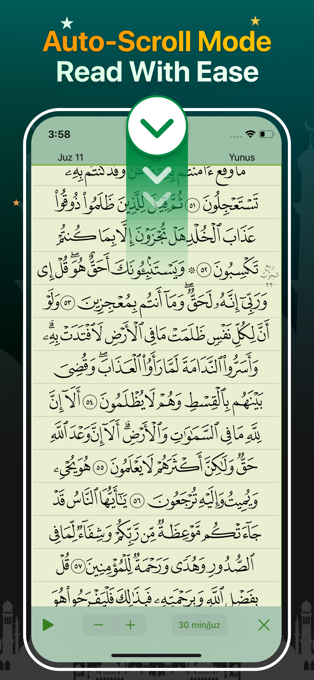 Auto-Scroll Mode
Read With Ease
3:58
Juz 11
Yunus
تَسْتَعْجِلُونَ ٥١ ثُمَّ قِيلَ لِلَّذِينَ ظَلَمُوا۟ ذُوقُوا۟
عَذَابَ ٱلْخُلْدِ هَلْ تُجْزَوْنَ إِلَّا بِمَا كُنتُمْ
تَكْسِبُونَ ٥٢ ۞ وَيَسْتَنۢبِـُٔونَكَ أَحَقٌّ هُوَ ۖ قُلْ إِى
وَرَبِّىٓ إِنَّهُۥ لَحَقٌّ ۖ وَمَآ أَنتُم بِمُعْجِزِينَ ٥٣ وَلَوْ
أَنَّ لِكُلِّ نَفْسٍ ظَلَمَتْ مَا فِى ٱلْأَرْضِ لَٱفْتَدَتْ بِهِۦ ۗ
وَأَسَرُّوا۟ ٱلنَّدَامَةَ لَمَّا رَأَوُا۟ ٱلْعَذَابَ ۖ وَقُضِىَ
بَيْنَهُم بِٱلْقِسْطِ ۚ وَهُمْ لَا يُظْلَمُونَ ٥٤ أَلَآ إِنَّ
لِلَّهِ مَا فِى ٱلسَّمَـٰوَٰتِ وَٱلْأَرْضِ ۗ أَلَآ إِنَّ وَعْدَ ٱللَّهِ
حَقٌّ وَلَـٰكِنَّ أَكْثَرَهُمْ لَا يَعْلَمُونَ ٥٥ هُوَ يُحْىِۦ
وَيُمِيتُ وَإِلَيْهِ تُرْجَعُونَ ٥٦ يَـٰٓأَيُّهَا ٱلنَّاسُ قَدْ
جَآءَتْكُم مَّوْعِظَةٌ مِّن رَّبِّكُمْ وَشِفَآءٌ لِّمَا فِى
ٱلصُّدُورِ وَهُدًى وَرَحْمَةٌ لِّلْمُؤْمِنِينَ ٥٧ قُلْ
بِفَضْلِ ٱللَّهِ وَبِرَحْمَتِهِۦ فَبِذَٰلِكَ فَلْيَفْرَحُوا۟ هُوَ
30 min/juz